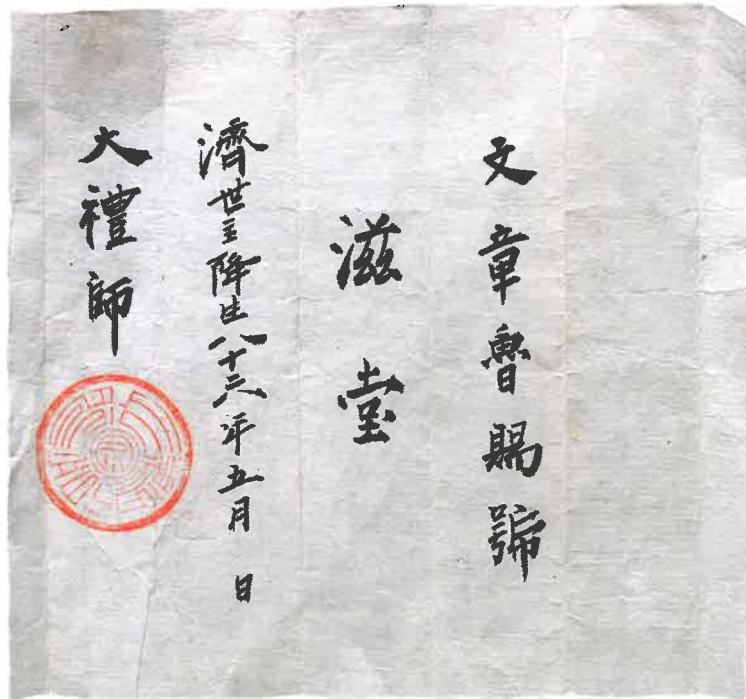 文章魯賜號
滋堂
濟世主降生八十三年五月 日
大禮師